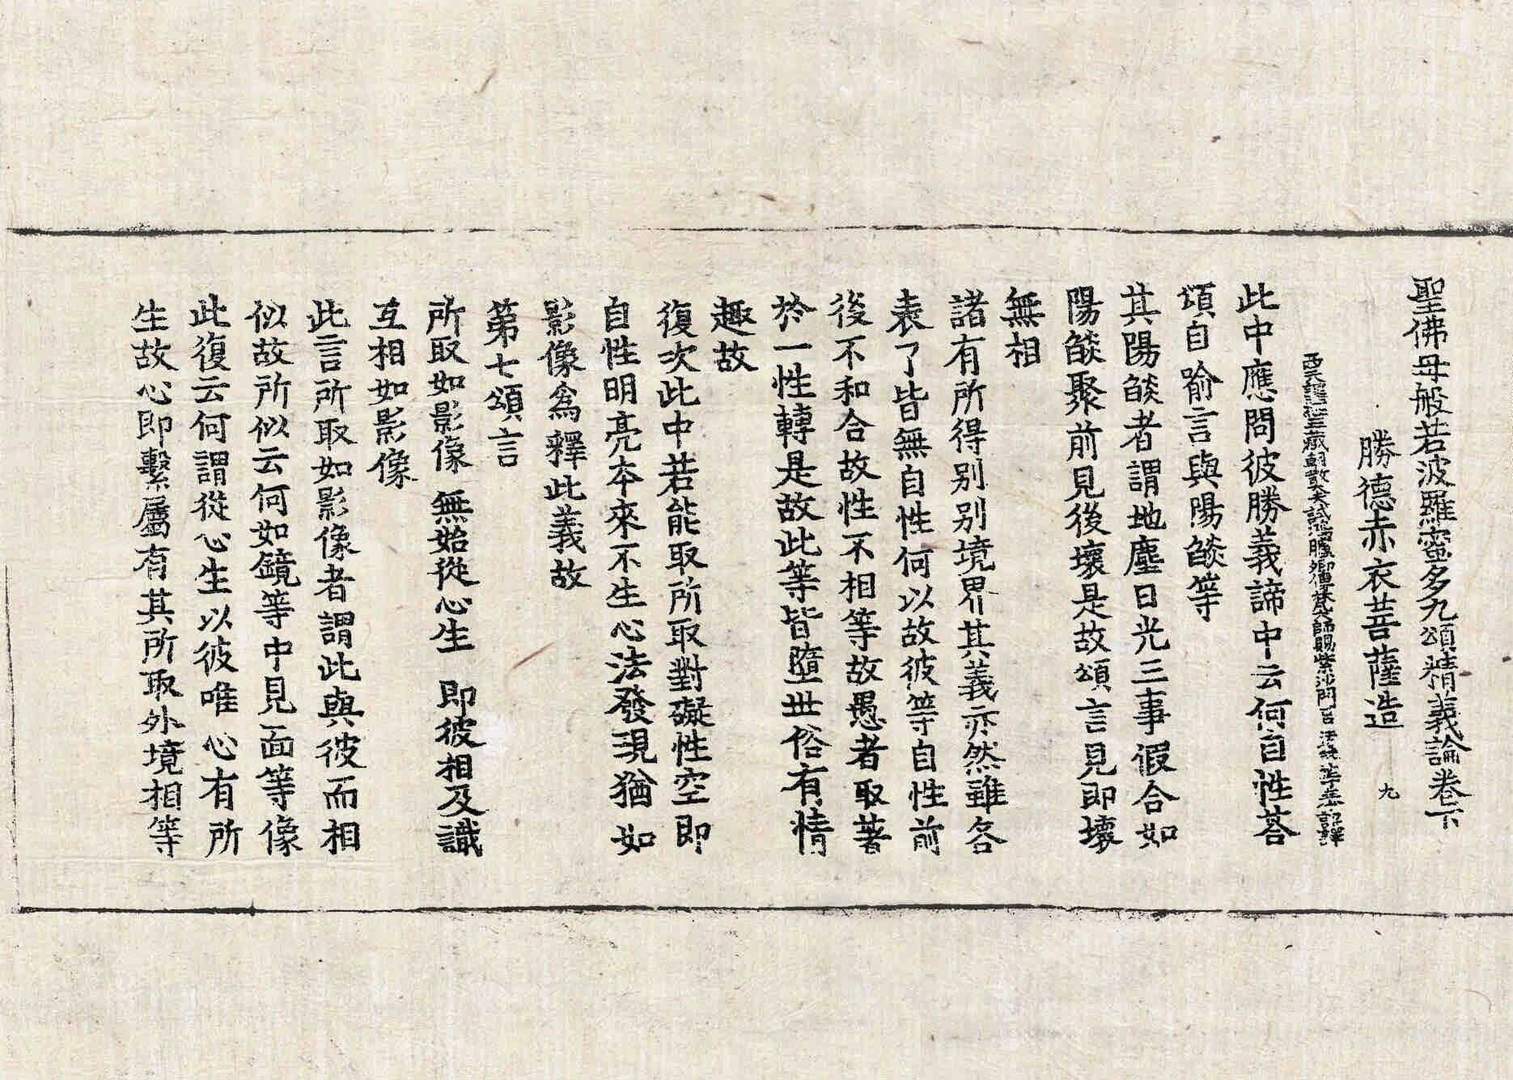 聖佛母般若波羅蜜多九頌精義論卷下
勝德赤衣菩薩造 九
西天譯經三藏朝散大夫試鴻臚卿傳梵大師賜紫沙門臣法護等奉詔譯
此中應問彼勝義諦中云何自性荅
頌自喻言與陽燄等
其陽燄者謂地塵日光三事假合如
陽燄聚前見後壞是故頌言見即壞
無相
諸有所得别别境界其義亦然雖各
表了皆無自性何以故彼等自性前
後不和合故性不相等故愚者取著
於一性轉是故此等皆墮世俗有情
趣故
復次此中若能取所取對礙性空即
自性明亮本來不生心法發現猶如
影像爲釋此義故
第七頌言
所取如影像 無始從心生 即彼相及識
互相如影像
此言所取如影像者謂此與彼而相
似故所似云何如鏡等中見面等像
此復云何謂從心生以彼唯心有所
生故心即繫屬有其所取外境相等